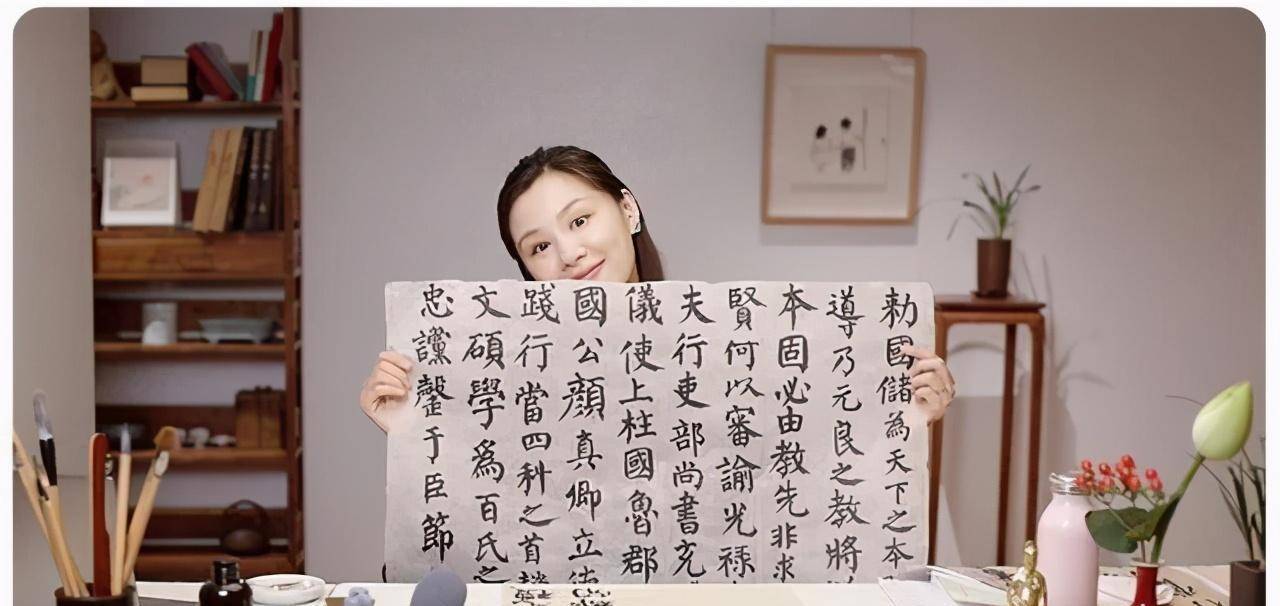 勅國儲為天下之本
導乃元良之教將
本固必由教先非求
賢何以審諭光禄
夫行吏部尚書充
儀使上柱國魯郡
國公顏真卿立
踐行當四科之首
文碩學爲百氏之
忠讜罄于臣節